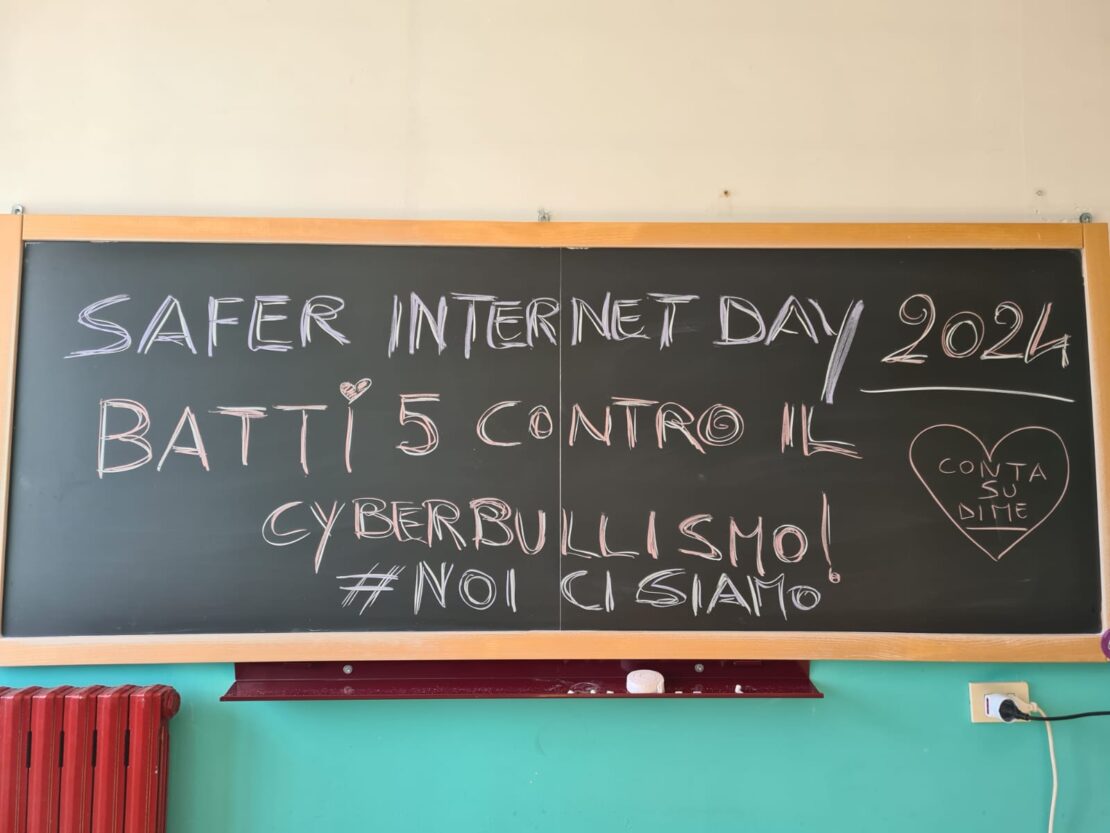 SAFER INTERNET DAY 2024
BATTI 5 CONTRO IL
CYBERBULLISMO!
#NOI CI SIAMO
CONTA
SU
DI ME